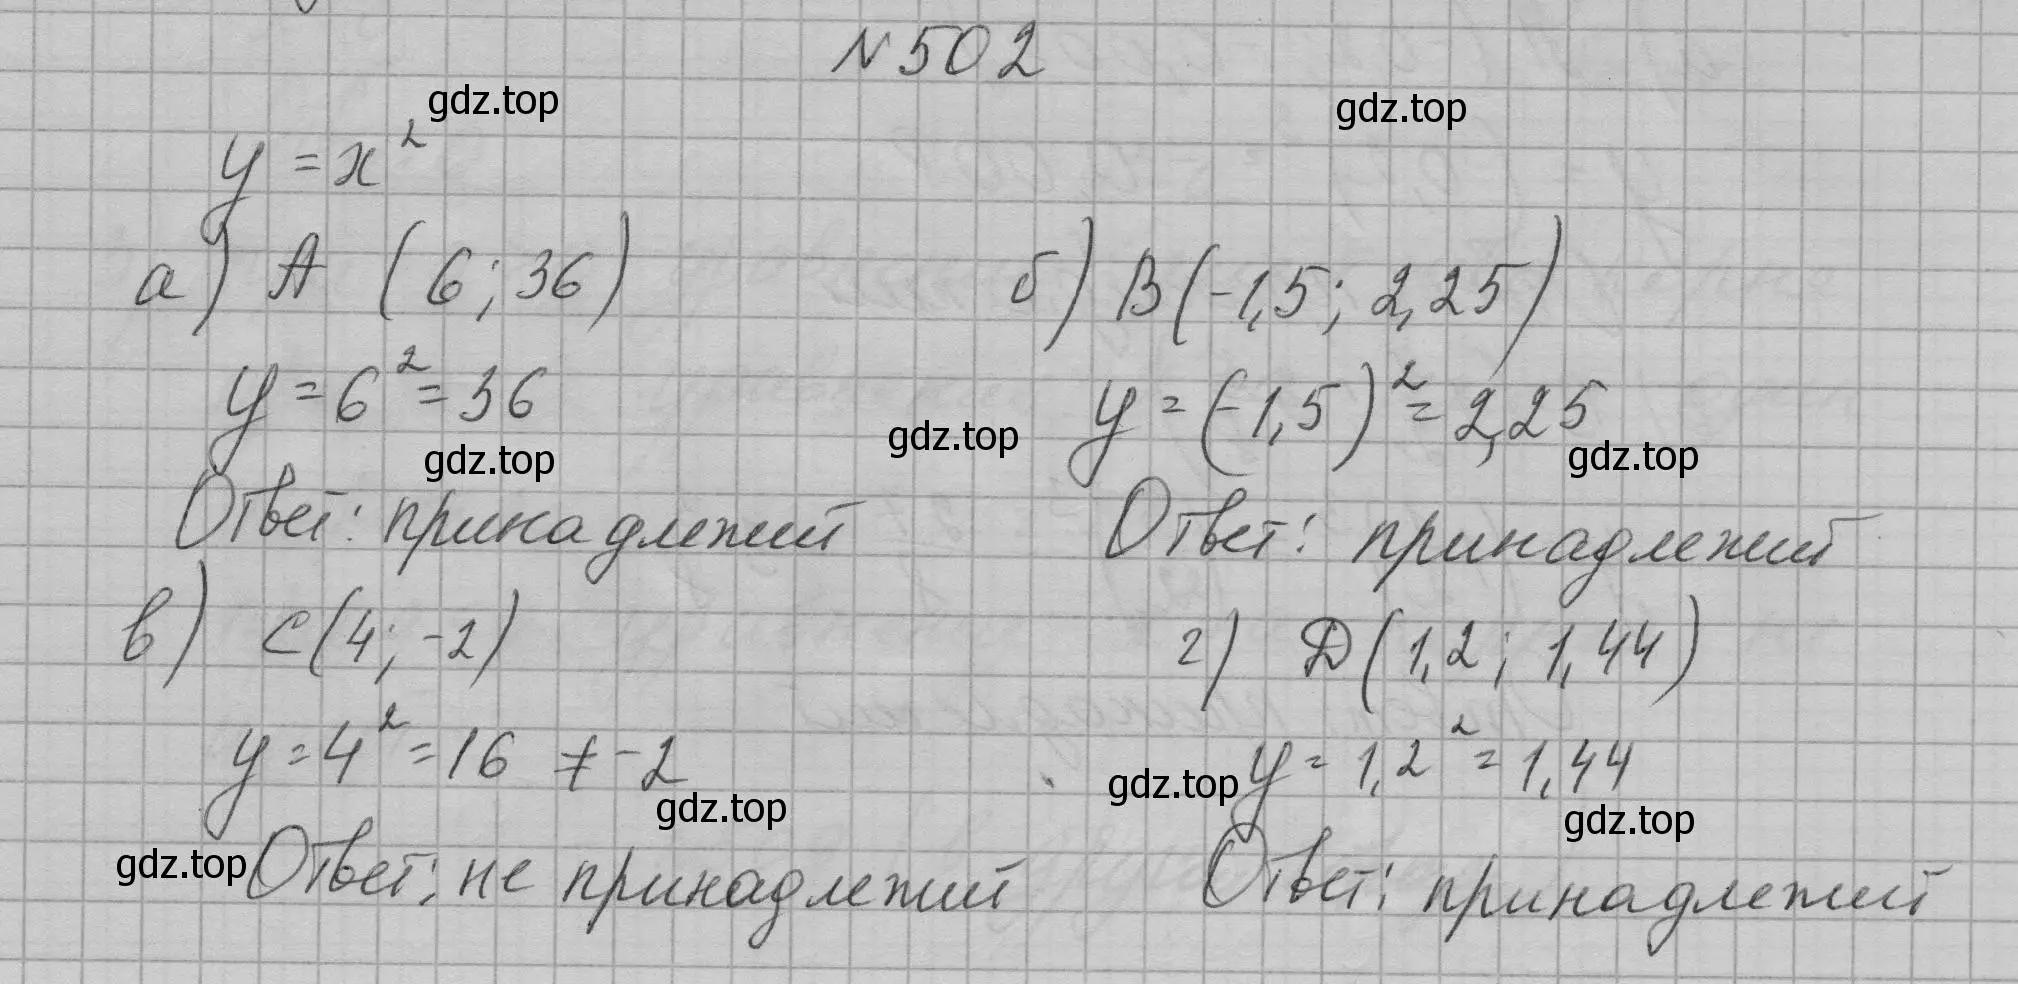 N 502
gdz.top
gdz.top
y = x²
а) A (6; 36)
y = 6² = 36
gdz.top
Ответ: принадлежит
б) B(-1,5; 2,25)
y = (-1,5)² = 2,25
gdz.top
gdz.top
Ответ: принадлежит
в) C(4; -2)
y = 4² = 16 ≠ -2
gdz.top
gdz.top
Ответ: не принадлежит
г) D(1,2; 1,44)
y = 1,2² = 1,44
gdz.top
gdz.top
Ответ: принадлежит